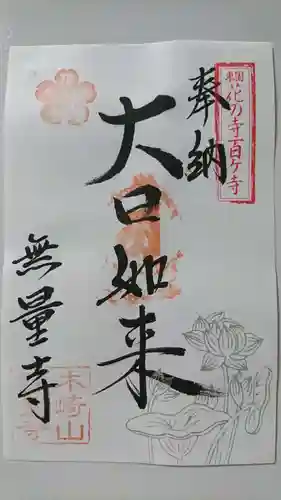 奉納
東国花の寺百ヶ寺
大日如来
無量寺